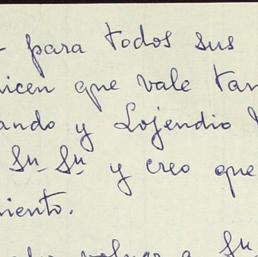 para todos sus
dicen que vale tan
ando y Lojendio
Sn. Sn y creo que
miento.
volver a Sn